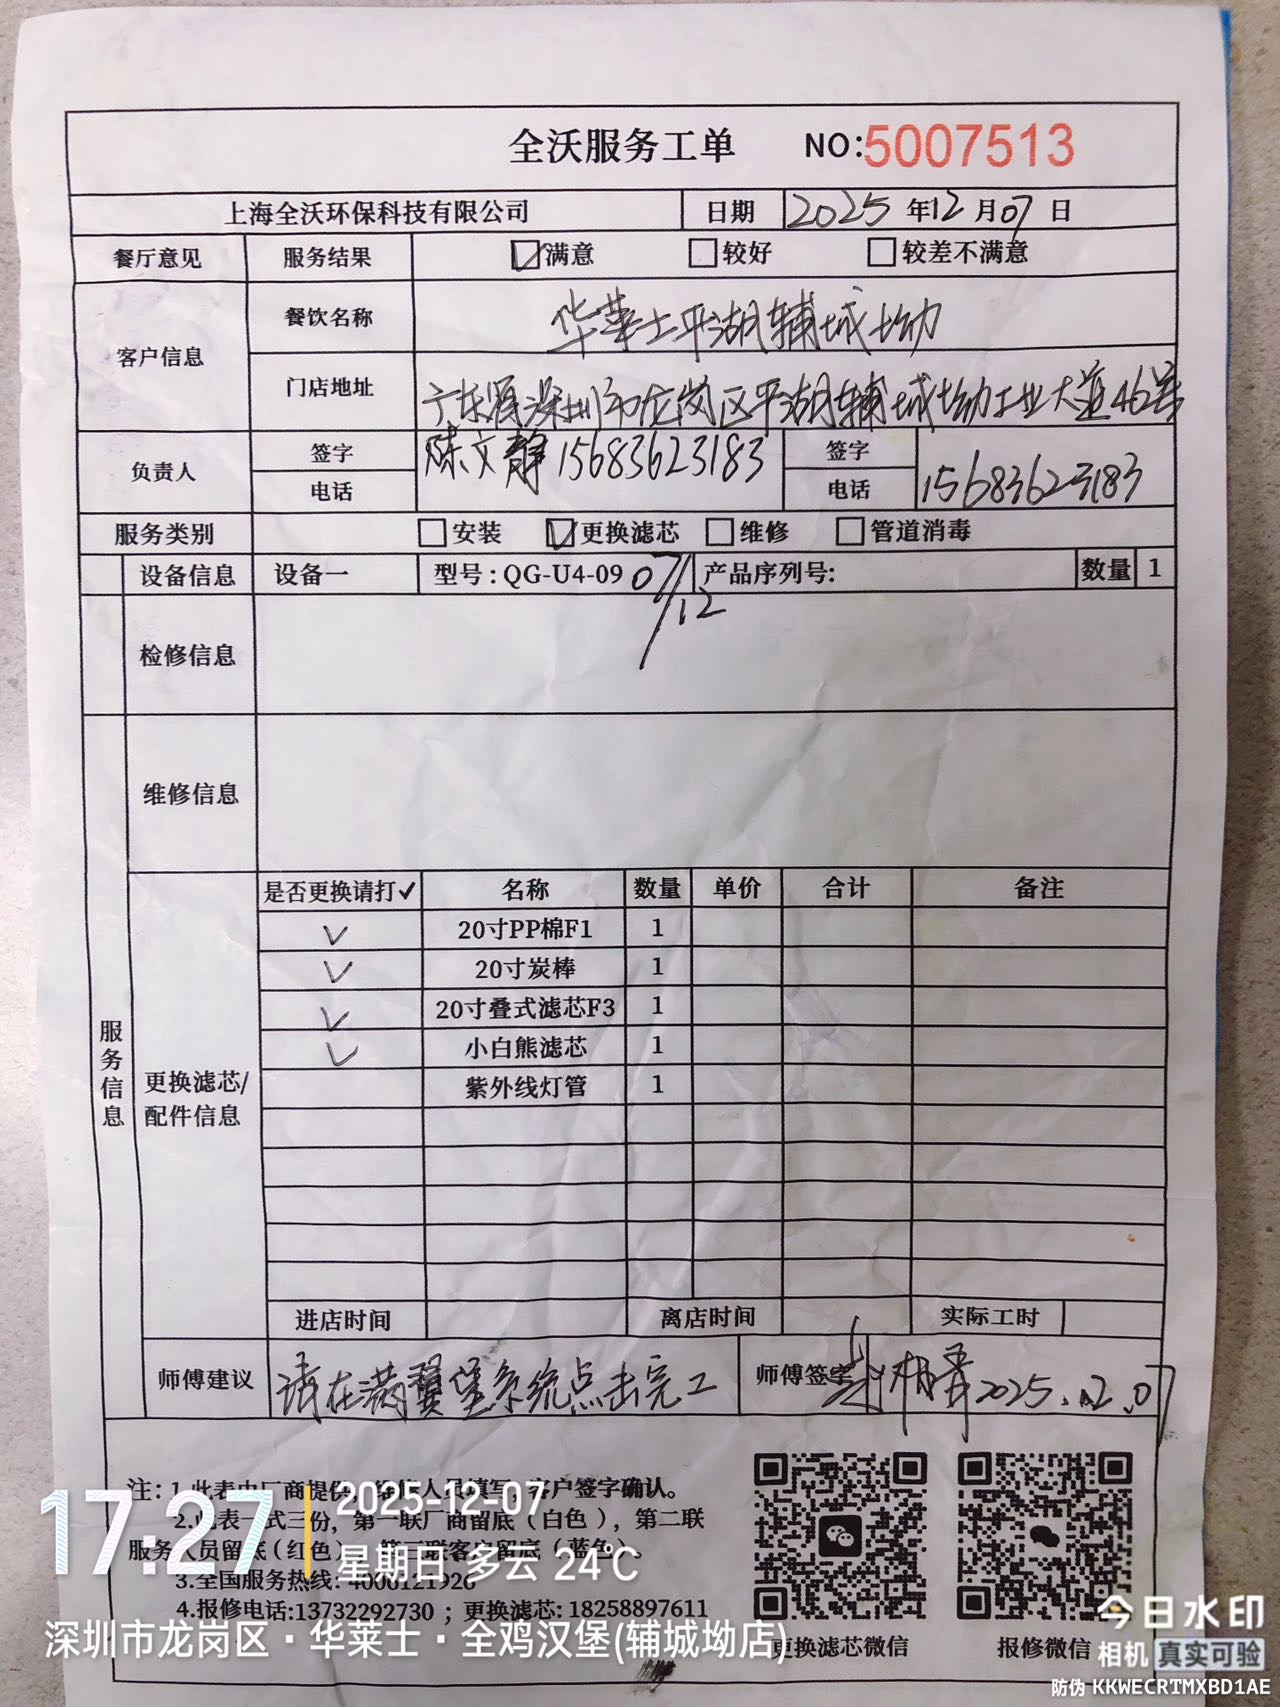 全沃服务工单 NO:5007513
上海全沃环保科技有限公司 日期 2025年12月07日
餐厅意见 服务结果 满意 较好 较差不满意
客户信息 餐饮名称 华莱士平湖辅城坳
门店地址 广东省深圳市龙岗区平湖辅城坳工业大道46号
负责人 签字 陈文静 15683623183 签字
电话 电话 15683623183
服务类别 安装 更换滤芯 维修 管道消毒
设备信息 设备一 型号:QG-U4-09 07/12 产品序列号: 数量 1
检修信息
维修信息
服务信息
更换滤芯/配件信息
是否更换请打✓ 名称 数量 单价 合计 备注
✓ 20寸PP棉F1 1
✓ 20寸炭棒 1
✓ 20寸叠式滤芯F3 1
✓ 小白熊滤芯 1
紫外线灯管 1
进店时间 离店时间 实际工时
师傅建议 请在满翼堡系统点击完工 师傅签字 2025.12.07
注: 1.此表由厂商提供, 人员填写,客户签字确认。
2.此表一式三份, 第一联厂商留底(白色), 第二联
服务人员留底(红色), 第三联客户留底(蓝色)。
3.全国服务热线: 4000121926
4.报修电话:13732292730 ; 更换滤芯: 18258897611
更换滤芯微信 报修微信
17:27 2025-12-07
星期日 多云 24℃
深圳市龙岗区·华莱士·全鸡汉堡(辅城坳店)
今日水印
相机 真实可验
防伪 KKWECRTMXBD1AE